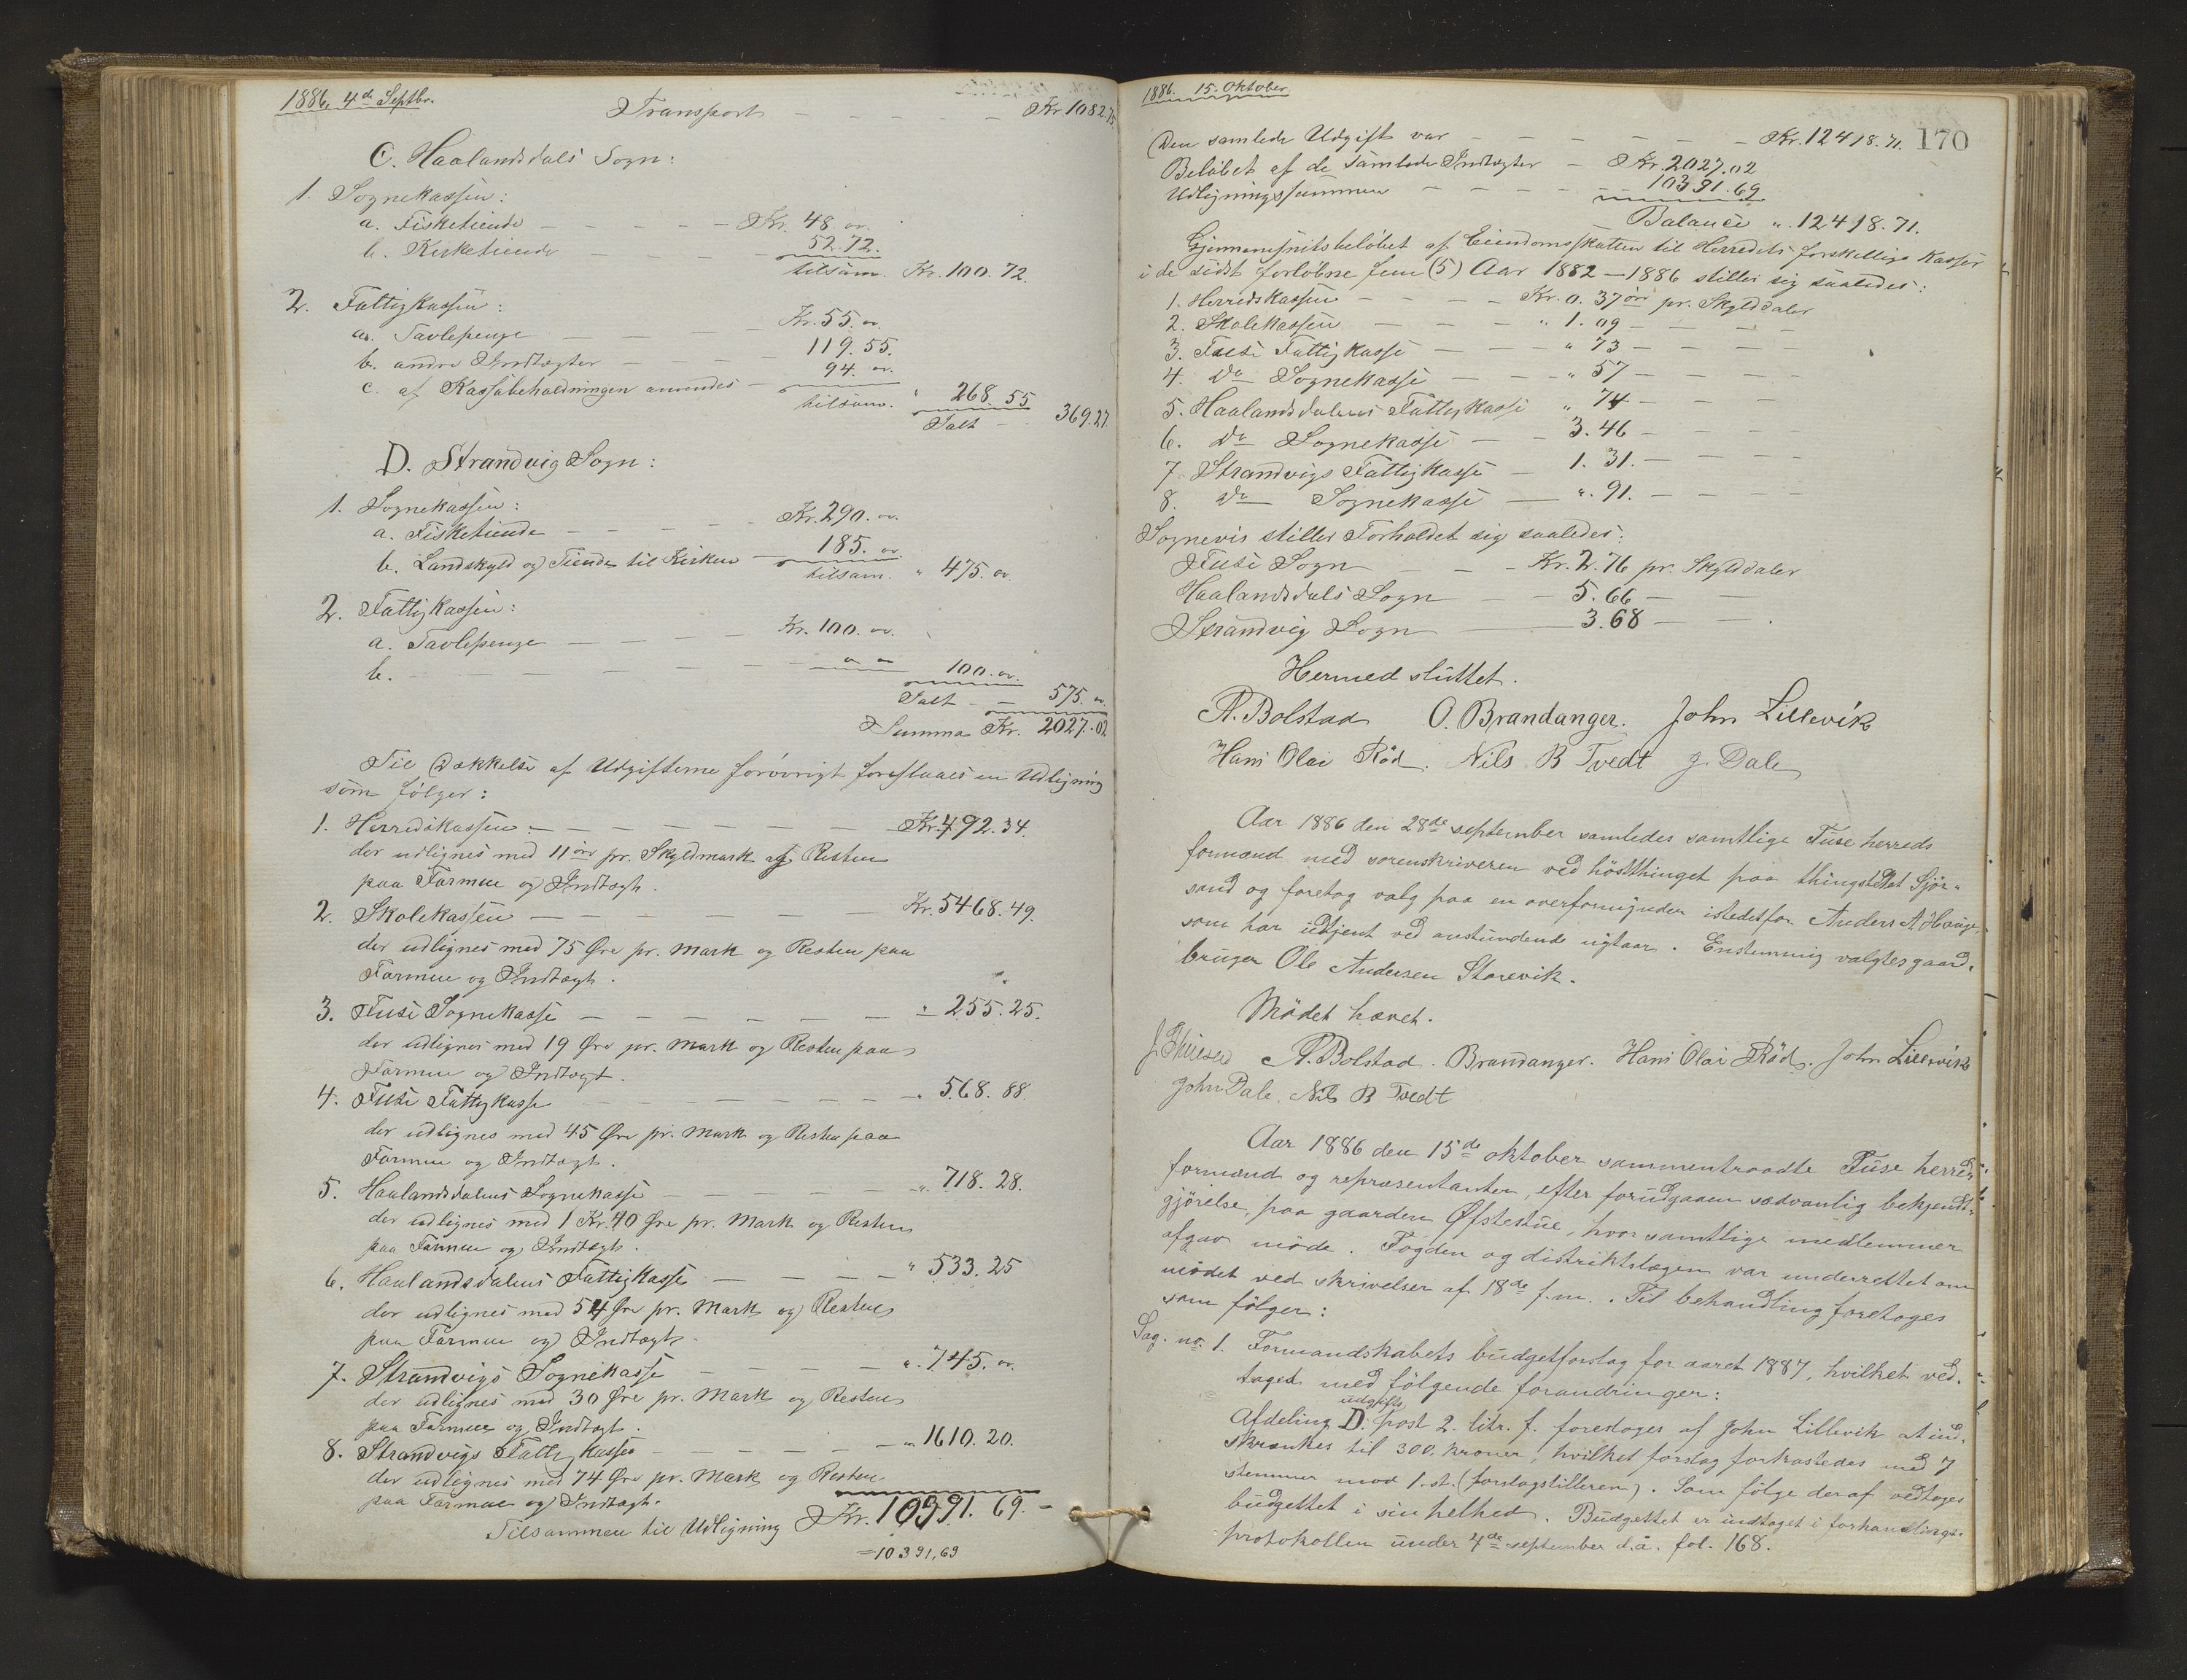 1886, 4de Septbr.
Transport - - - - - Kr. 1082.75
C. Haalandsdals Sogn:
1. Sognekassen:
a. Fisketiende - - - - - Kr. 48. "
b. Kirketiende - - - - 52.72.
tilsam. Kr. 100.72.
2. Fattigkassen:
a. Tavlepenge - - - Kr. 55. "
b. andre Indtægter - - - 119.55.
c. af Kassabeholdningen anvendes - 94. "
tilsam. " 268.55
Ialt - 369.27
D. Strandvig Sogn:
1. Sognekassen:
a. Fisketiende - - - - Kr. 290. "
b. Landskyld og Tiende til Kirken - 185. "
tilsam. " 475. "
2. Fattigkassen:
a. Tavlepenge - - - - Kr. 100. "
b. - - - - - " " 100. "
Ialt - - 575. "
Summa Kr. 2027.02
Til Dækkelse af Udgifterne forøvrigt foreslaaes en Udligning
som følger:
1. Herredskassen: - - - - - - Kr. 492.34.
der udlignes med 11 øre pr. Skyldmark og Resten
paa Formue og Indtægt.
2. Skolekassen - - - - - - Kr. 5468.49.
der udlignes med 75 Øre pr. Mark og Resten paa
Formue og Indtægt.
3. Fuse Sognekasse - - - - - - " 255.25.
der udlignes med 19 Øre pr. Mark og Resten paa
Formue og Indtægt.
4. Fuse Fattigkasse - - - - - - " 568.88.
der udlignes med 45 Øre pr. Mark og Resten paa
Formue og Indtægt.
5. Haalandsdalens Sognekasse - - - - " 718.28.
der udlignes med 1 Kr. 40 Øre pr. Mark og Resten
paa Formue og Indtægt.
6. Haalandsdalens Fattigkasse - - - - " 533.25
der udlignes med 54 Øre pr. Mark og Resten
paa Formue og Indtægt.
7. Strandvigs Sognekasse - - - - " 745. "
der udlignes med 30 Øre pr. Mark og Resten
paa Formue og Indtægt.
8. Strandvigs Fattigkasse - - - - - " 1610.20.
der udlignes med 74 Øre pr. Mark og Resten
paa Formue og Indtægt.
Tilsammen til Udligning Kr. 10391.69. -
= 10391,69
1886. 15. Oktober.
170
Den samlede Udgift var - - - - - Kr. 12418.71.
Beløbet af de samlede Indtægter - Kr. 2027.02
Udligningssummen - - - - - 10391.69
Balance " 12418.71.
Gjennemsnitsbeløbet af Eiendomsskatten til Herredets forskellige Kasser
i de sidst forløbne fem (5) Aar 1882 - 1886 stiller sig saaledes:
1. Herredskassen - - - - Kr. 0.37 øre pr. Skylddaler
2. Skolekassen - - - - " 1.09 - - - -
3. Fuse Fattigkasse - - - " 73 - - - -
4. Do Sognekasse - - - " 57 - - - -
5. Haalandsdalens Fattigkasse " 74 - - - -
6. Do Sognekasse - - 3.46 - - - -
7. Strandvigs Fattigkasse - 1.31. - - - -
8. Do Sognekasse - " 91. - - - -
Sognevis stiller Forholdet sig saaledes:
Fuse Sogn - - - Kr. 2.76 pr. Skylddaler
Haalandsdals Sogn - - 5.66 - -
Strandvig Sogn - 3.68 - - .
Hermed sluttet.
A. Bolstad O. Brandanger. John Lillevik
Hans Olai Rød. Nils B Tvedt J. Dale
Aar 1886 den 28de september samledes samtlige Fuse herreds
formænd med sorenskriveren ved høstthinget paa thingstedet Sjør-
sand og foretog valg paa en overformynder istedetfor Anders A Hauge,
som har udtjent ved anstundende nytaar. Enstemmig valgtes gaard-
bruger Ole Andersen Storevik.
Mødet hævet.
A. Bolstad. Brandanger. Hans Olai Rød. John Lillevik
John Dale. Nils B Tvedt
Aar 1886 den 15de oktober sammentraadte Fuse herreds
formænd og repræsentanter, efter forudgaaen sædvanlig bekjendt-
gjørelse, paa gaarden Øfstestue, hvor samtlige medlemmer
afgav møde. Fogden og distriktslægen var underrettet om
mødet ved skrivelser af 18de f.m. Til behandling foretoges
som følger:
Sag. no. 1. Formandskabets budgetforslag for aaret 1887, hvilket ved-
toges med følgende forandringer:
udgifts
Afdeling D. post 2. litr. f. foresloges af John Lillevik at ind-
skrænkes til 300. kroner, hvilket forslag forkastedes med 7
stemmer mod 1. st. (forslagstilleren). Som følge deraf vedtoges
budgettet i sin helhed. Budgettet er indtaget i forhandlings-
protokollen under 4de september d.å. fol. 168.